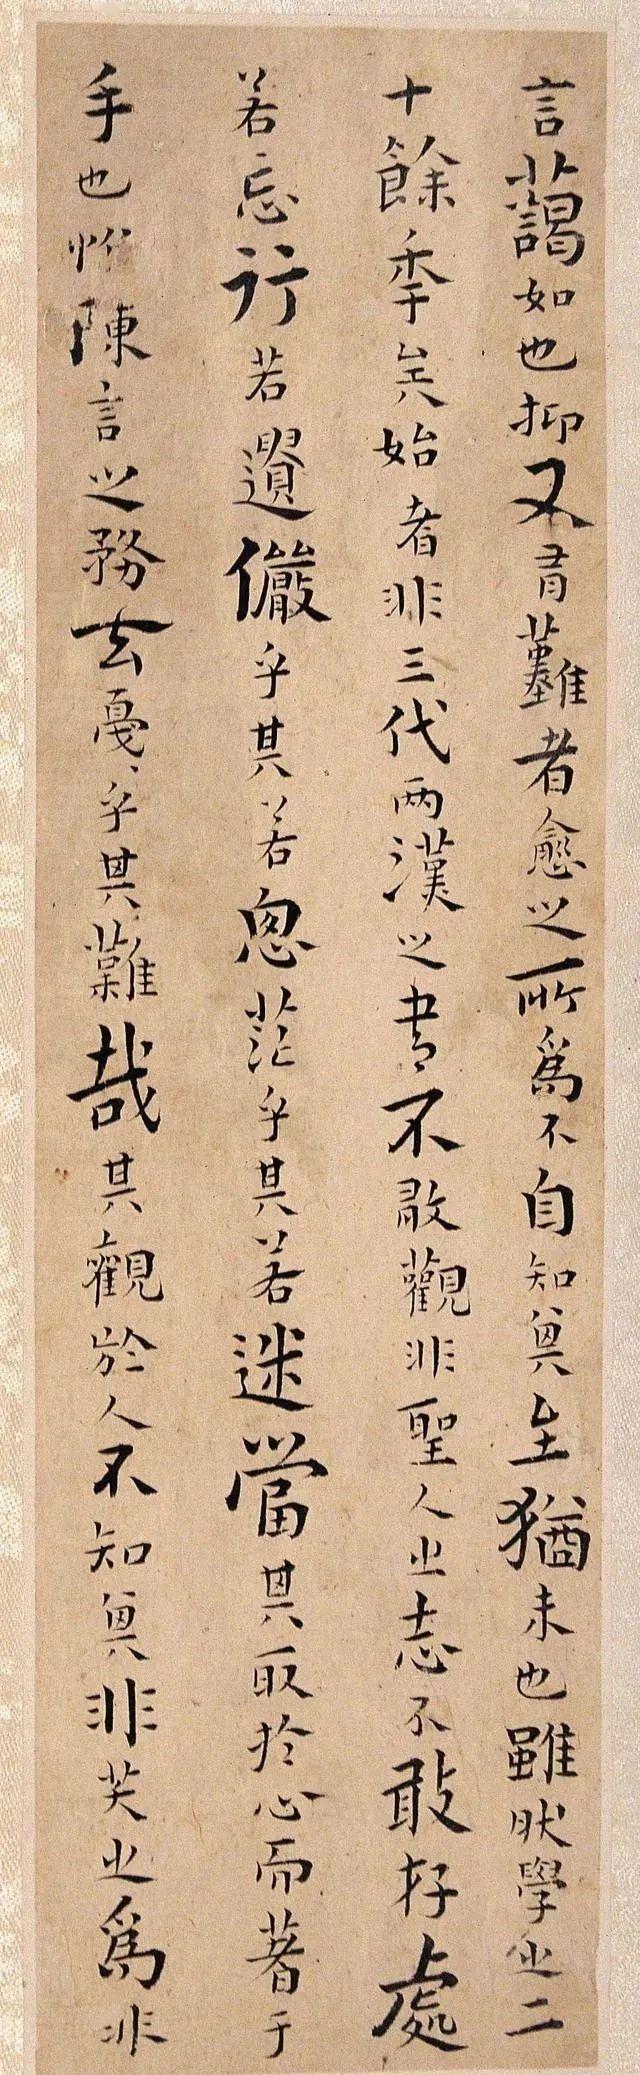 言藹如也抑又有難者愈之所爲不自知其至猶未也雖然學之二
十餘秊矣始者非三代兩漢之書不敢觀非聖人之志不敢存處
若忘行若遺儼乎其若思茫乎其若迷當其取於心而著于
手也惟陳言之務去戛〻乎其難哉其觀於人不知其非笑之爲非